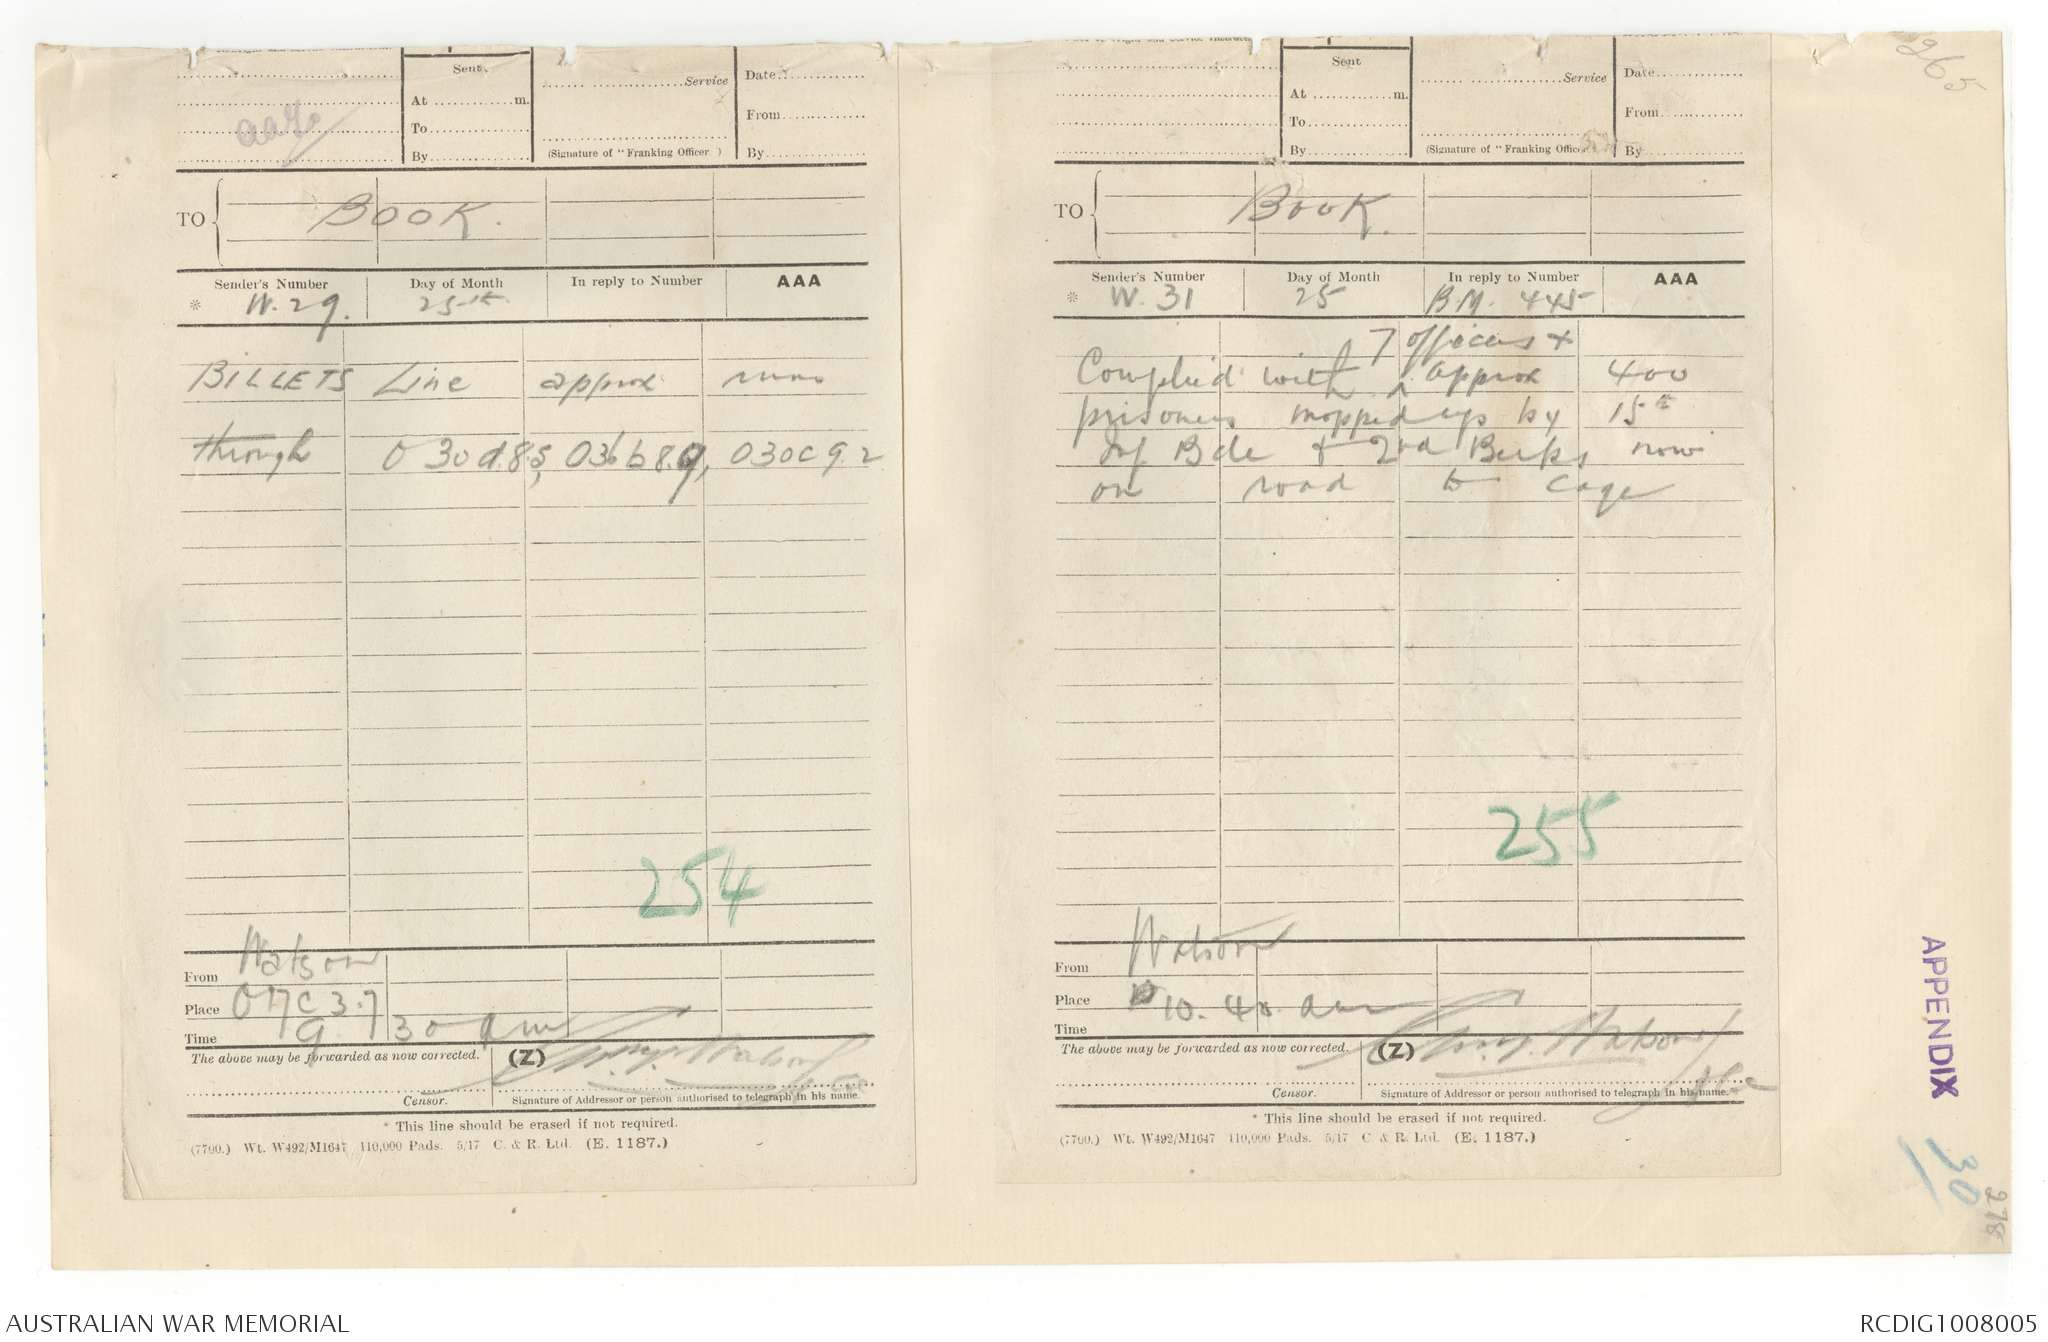 265
Sent
At ........ m.
To
By
Service
(Signature of "Franking Officer.")
Date
From
By
TO
BOOK.
Sender's Number
Day of Month
In reply to Number
AAA
* W. 29.
25th
BILLETS Line approx runs
through O 30 d.8.5, O36 b 8.9, O30C 9.2
254
From Watson
Place O17C 3.7
Time 9.30 am
The above may be forwarded as now corrected.
(Z)
Watson
Censor.
Signature of Addressor or person authorised to telegraph in his name.
* This line should be erased if not required.
(7700.) Wt. W492/M1647 110,000 Pads. 5/17 C. & R. Ltd. (E. 1187.)
Sent
At ........ m.
To
By
Service
(Signature of "Franking Officer.")
Date
From
By
TO
BOOK.
Sender's Number
Day of Month
In reply to Number
AAA
* W. 31
25
B.M. 445
7 officers +
Complied with approx 400
prisoners mopped up by 15th
Inf Bde & 2nd Berks now
on road to cage
255
From Watson
Place
Time 10.40. am
The above may be forwarded as now corrected.
(Z)
Watson
Censor.
Signature of Addressor or person authorised to telegraph in his name.
* This line should be erased if not required.
(7700.) Wt. W492/M1647 110,000 Pads. 5/17 C. & R. Ltd. (E. 1187.)
APPENDIX
30
278
AUSTRALIAN WAR MEMORIAL
RCDIG1008005